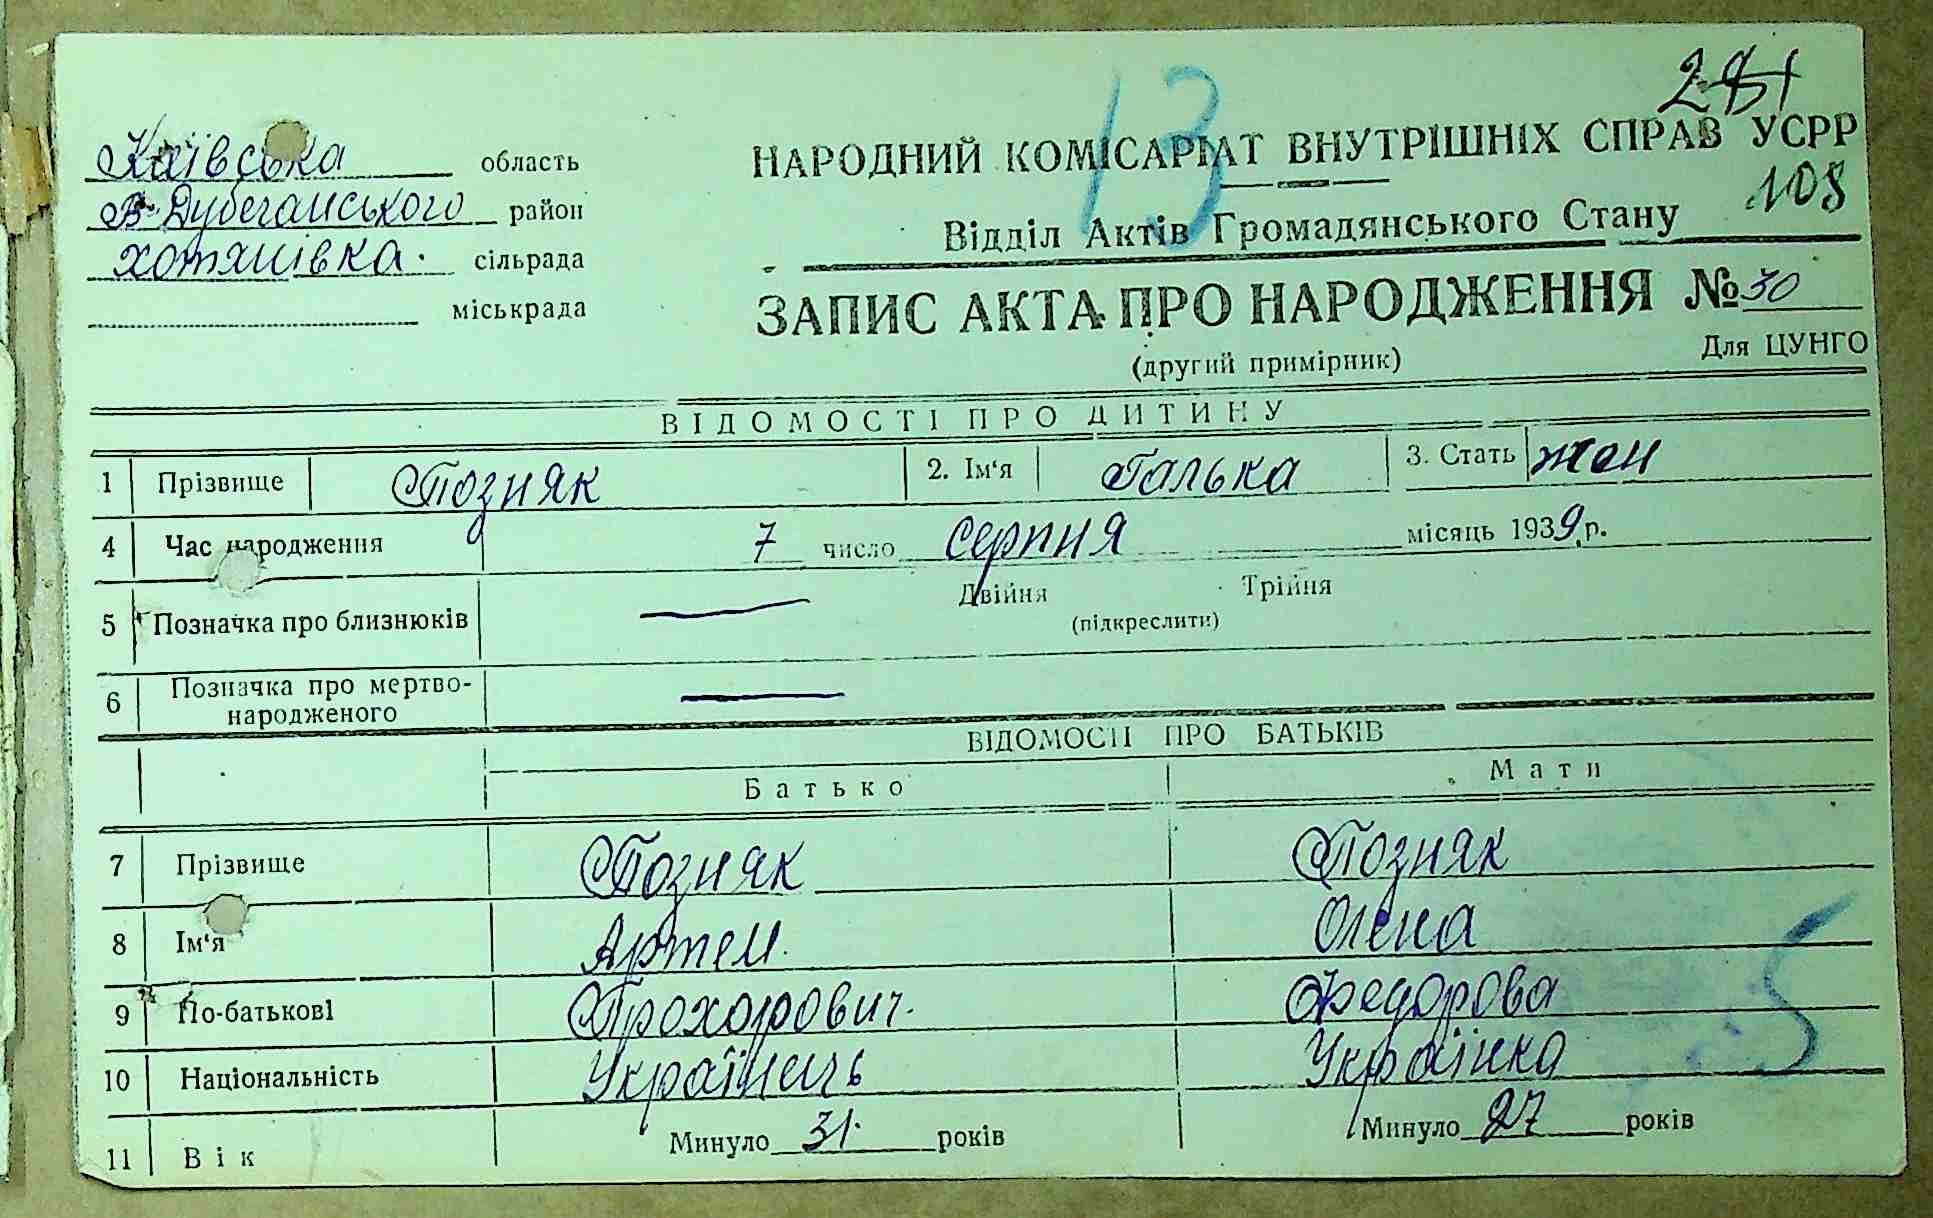 13
281
Київська область
В-Дубечанського район
Хотянівка. сільрада
міськрада
НАРОДНИЙ КОМІСАРІАТ ВНУТРІШНІХ СПРАВ УСРР
108
Відділ Актів Громадянського Стану
ЗАПИС АКТА ПРО НАРОДЖЕННЯ № 30
(другий примірник)
Для ЦУНГО
ВІДОМОСТІ ПРО ДИТИНУ
1 Прізвище Позняк 2. Ім'я Галька 3. Стать жен
4 Час народження 7 число серпня місяць 1939 р.
5 Позначка про близнюків Двійня Трійня
(підкреслити)
6 Позначка про мертво-
народженого
ВІДОМОСТІ ПРО БАТЬКІВ
Батько Мати
7 Прізвище Позняк Позняк
8 Ім'я Артем. Олена
9 По-батькові Прохорович. Федорова
10 Національність Українець Українка
11 Вік Минуло 31. років Минуло 27 років
5